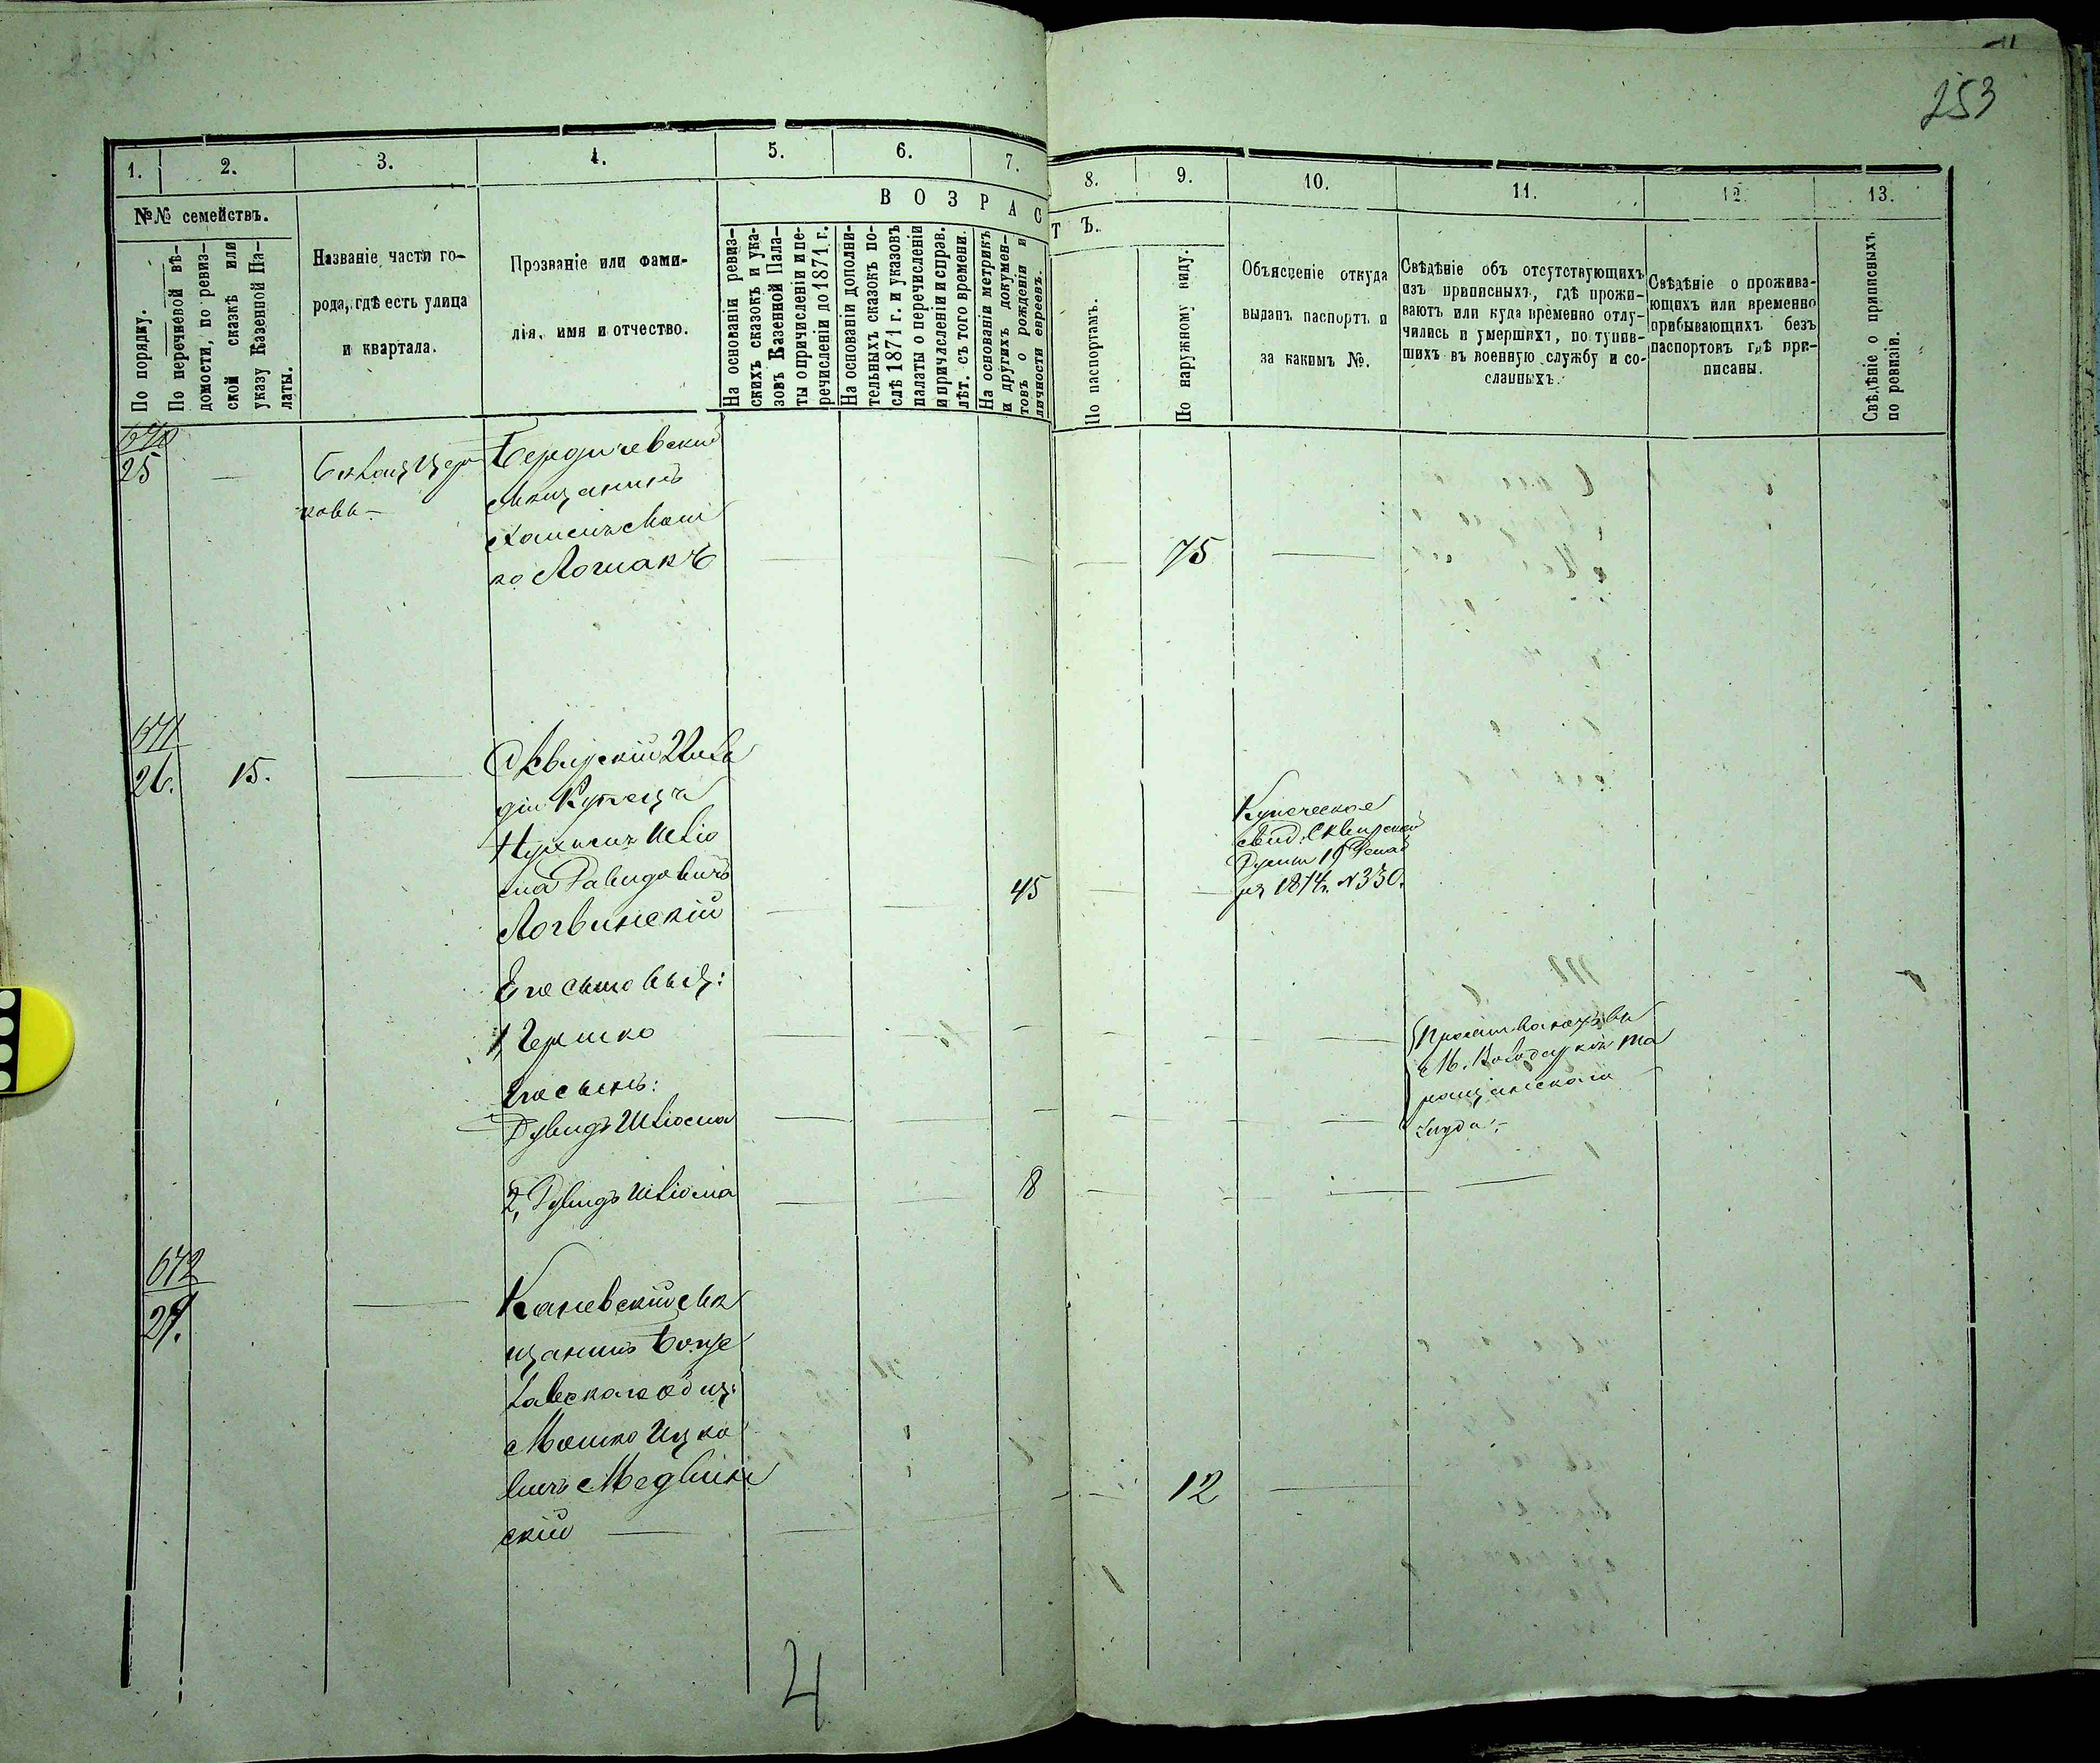 253
1.
2.
3.
4.
5.
6.
7.
8.
9.
10.
11.
12.
13.
№№ семействъ.
По порядку.
По перечневой вѣ-
домости, по ревиз-
ской сказкѣ или
указу Казенной Па-
латы.
Названіе части го-
рода, гдѣ есть улица
и квартала.
Прозваніе или фами-
лія, имя и отчество.
ВОЗРАСТЪ.
На основаніи ревиз-
скихъ сказокъ и ука-
зовъ Казенной Пала-
ты о причисленіи и пе-
речисленіи до 1871 г.
На основаніи дополни-
тельныхъ сказокъ по-
слѣ 1871 г. и указовъ
палаты о перечисленіи
и причисленіи и справ.
лѣт. съ того времени.
На основаніи метрикъ
и другихъ докумен-
товъ о рожденіи и
личности евреевъ.
По паспортамъ.
По наружному виду.
Объясненіе откуда
выданъ паспортъ и
за какимъ №.
Свѣдѣніе объ отсутствующихъ
изъ приписныхъ, гдѣ прожи-
ваютъ или куда временно отлу-
чились и умершихъ, поступив-
шихъ въ военную службу и со-
сланныхъ.
Свѣдѣніе о прожива-
ющихъ или временно
прибывающихъ безъ
паспортовъ гдѣ при-
писаны.
Свѣдѣніе о приписныхъ
по ревизіи.
670
25
Бердичевскій
мѣщанинъ
Мош
ко Лошакъ
75
671
26.
15.
Сквирскій 2й гил
діи Купецъ
Шліо
ма Давидовичъ
Логвинскій
45
Купеческое
свид. Сквирской
Думы 19 Декаб
ря 1874 г. № 330.
Его сыновья:
1, Гершко
Его сынъ:
Дувидъ Шліома
М. Володаркѣ Та
ращанскаго
уѣзда.
2, Дувидъ Шліома
8
672
27.
Каневскій мѣ
щанинъ Богу
славскаго общ.
Мошко Ицко
вичъ Медвин
скій
12
4